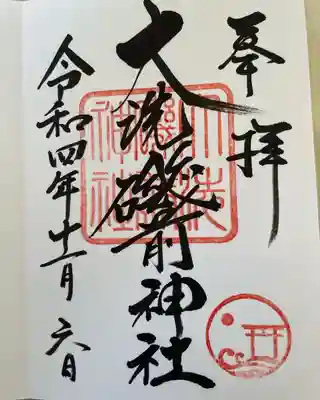 奉拝
大洗磯前神社
令和四年十一月六日
大洗
神社